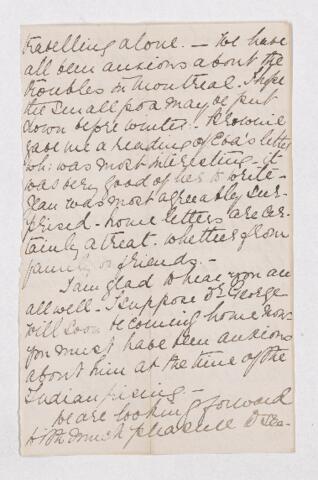 travelling alone. — We have
all been anxious about the
troubles in Montreal. I hope
the small pox may be put
down before winter. Brownie
gave me a reading of Eva's letter
wh: was most interesting - it
was very good of her to write -
Jean was most agreeably sur-
prised - home letters are cer-
tainly a treat - whether from
family or friends. -
I am glad to hear you are
all well - I suppose Dr George
will soon be coming home now
you must have been anxious
about him at the time of the
Indian rising -
We are looking forward
with much pleasure to